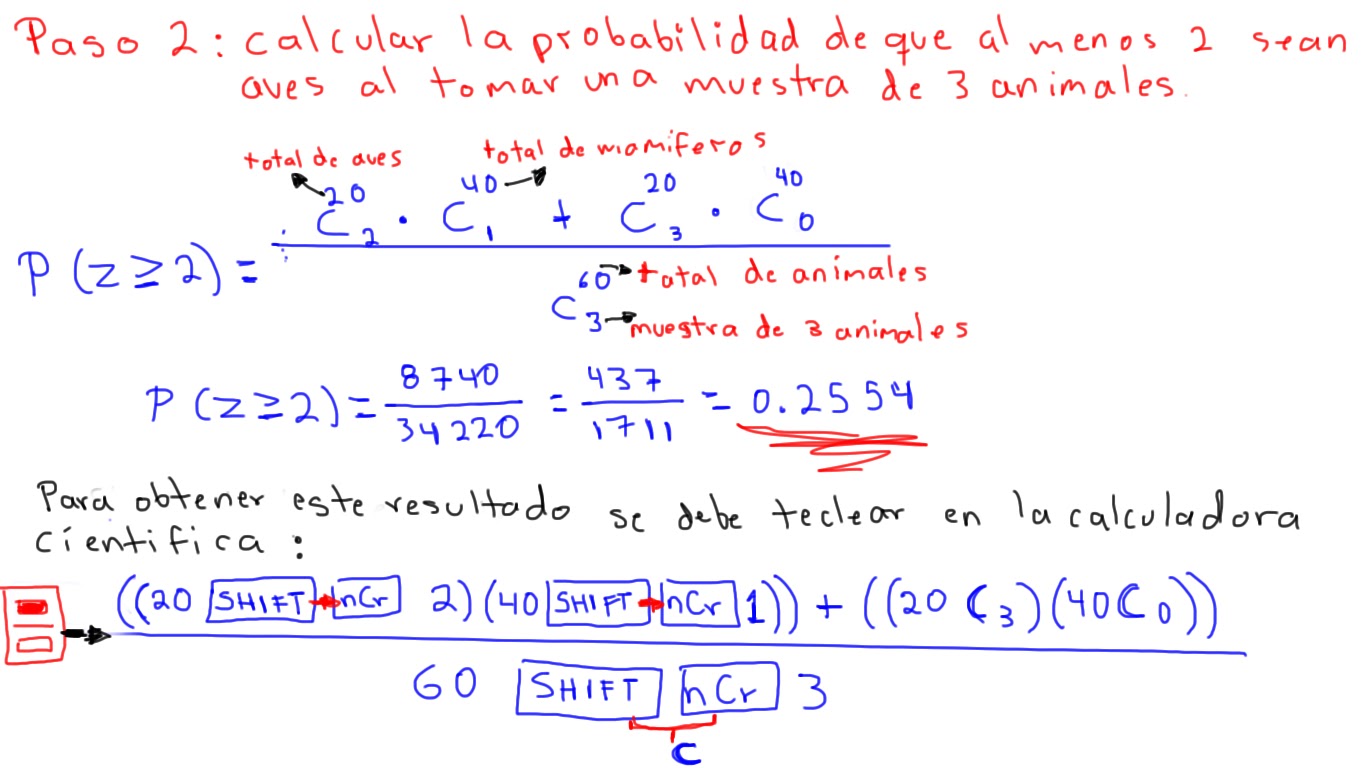 Paso 2: calcular la probabilidad de que al menos 2 sean
aves al tomar una muestra de 3 animales.
total de aves total de mamíferos
C₂²⁰ · C₁⁴⁰ + C₃²⁰ · C₀⁴⁰
P (z ≥ 2) =
60 total de animales
C 3 muestra de 3 animales
P (z ≥ 2) = 8740/34220 = 437/1711 = 0.2554
Para obtener este resultado se debe teclear en la calculadora
científica :
((20 SHIFT nCr 2)(40 SHIFT nCr 1)) + ((20 C₃)(40 C₀))
60 SHIFT nCr 3
C